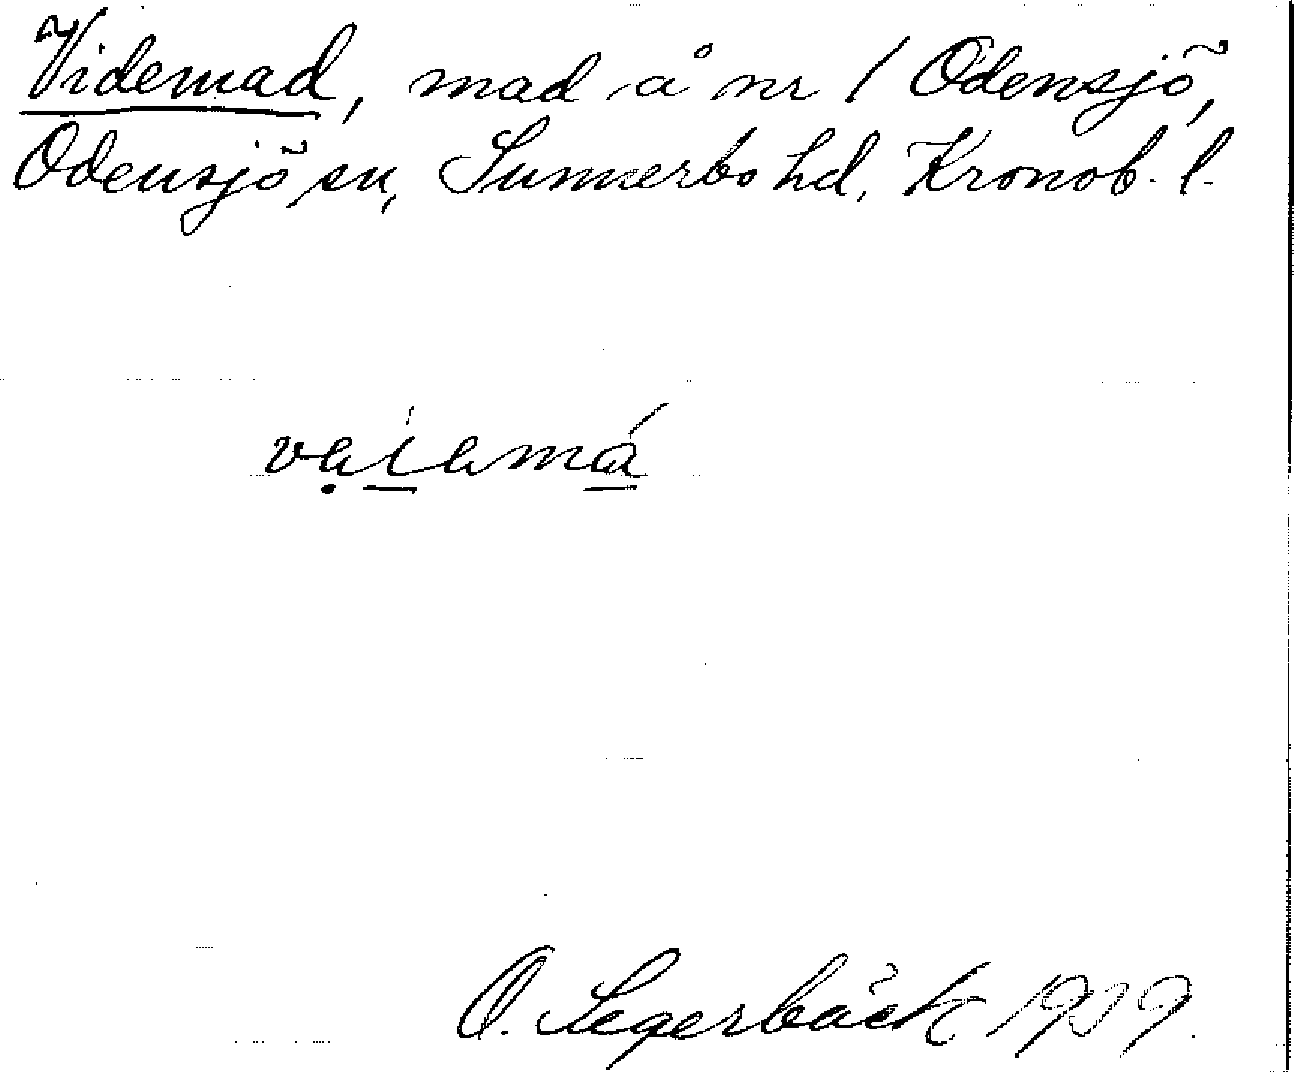 Videmad, mad å nr 1 Odensjö,
Odensjö sn, Sunnerbo hd, Kronob. l.
O. Segerbäck 1939.